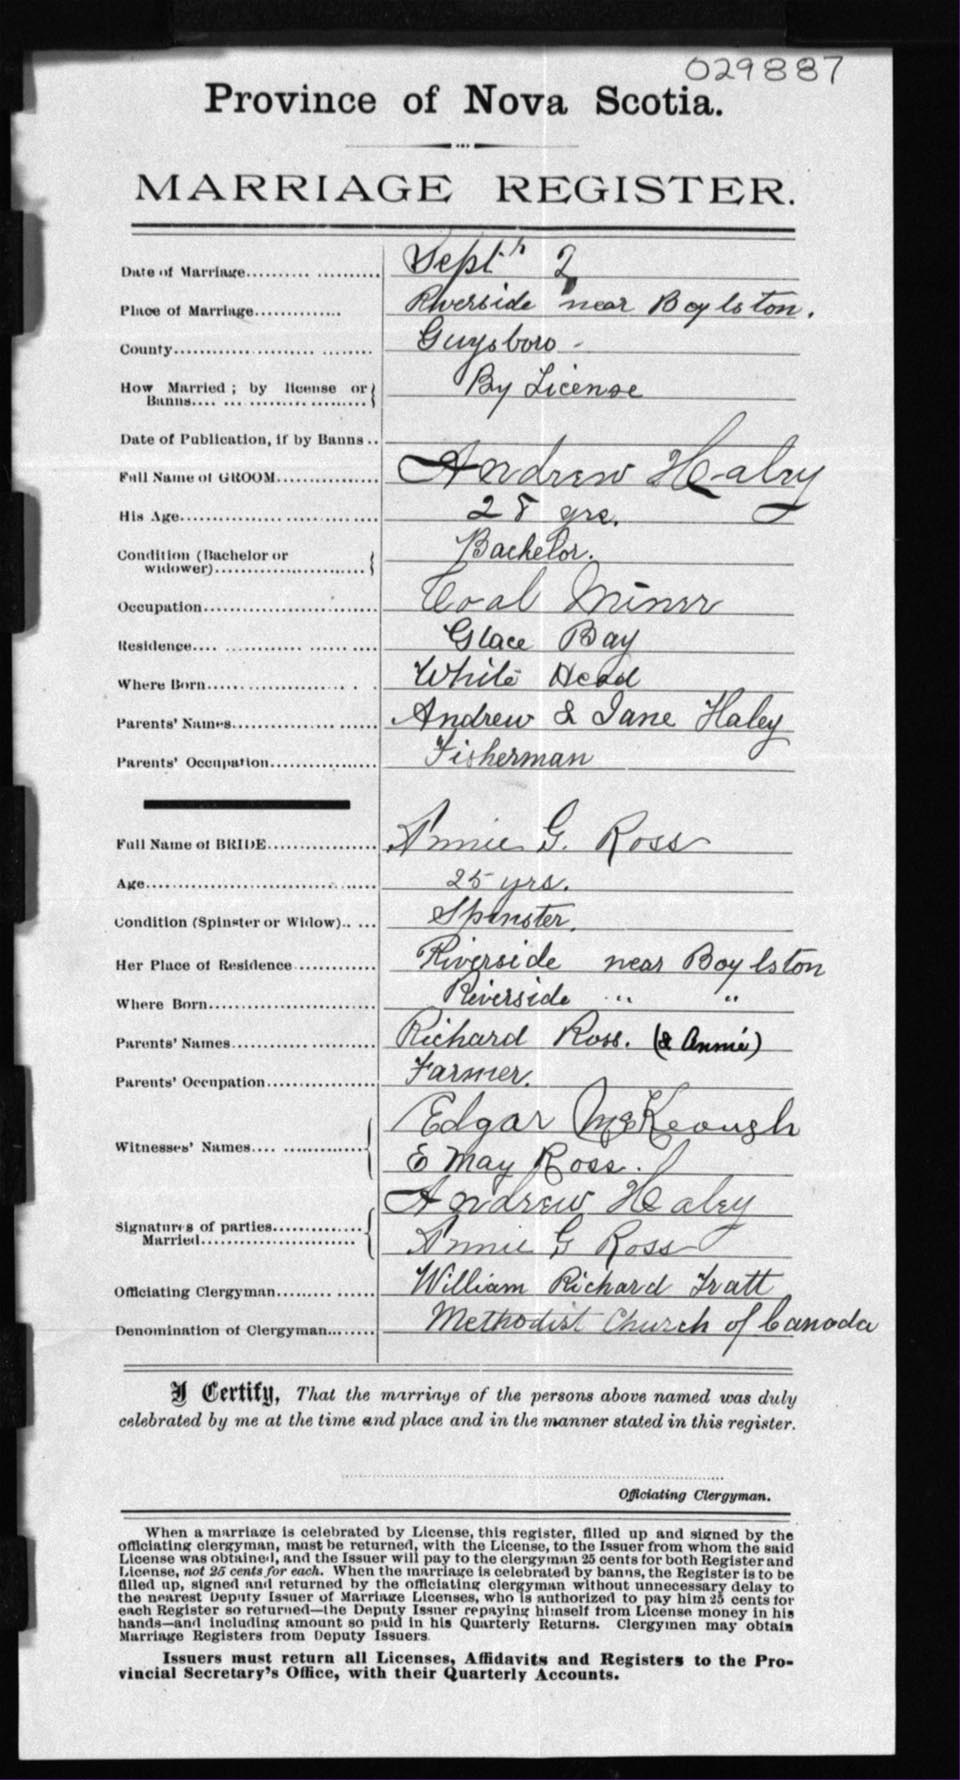 029887
Province of Nova Scotia.
MARRIAGE REGISTER.
Date of Marriage.......... Septh 2
Place of Marriage.............. Riverside near Boylston.
County.................................. Guysboro -
How Married; by license or By License
Banns.... ... ......................
Date of Publication, if by Banns ..
Full Name of GROOM................. Andrew Haley
His Age.................................. 28 yrs.
Condition (Bachelor or Bachelor.
widower).........................
Occupation............................. Coal Miner
Residence.... ............... ...... ..... Glace Bay
Where Born...................... . . White Head
Parents' Names........................ Andrew & Jane Haley
Parents' Occupation.................. Fisherman
Full Name of BRIDE.................. Annie G. Ross
Age...................................... 25 yrs.
Condition (Spinster or Widow).. ... Spinster.
Her Place of Residence ............ Riverside near Boylston
Where Born............................ Riverside " "
Parents' Names........................ Richard Ross. (& Annie)
Parents' Occupation.................. Farmer.
Edgar McKeough
Witnesses' Names.... ...............
E May Ross.
Andrew Haley
Signatures of parties..............
Married.......................... Annie G Ross
Officiating Clergyman......... ...... William Richard Tratt
Denomination of Clergyman....... Methodist Church of Canada
I Certify, That the marriage of the persons above named was duly
celebrated by me at the time and place and in the manner stated in this register.
Officiating Clergyman.
When a marriage is celebrated by License, this register, filled up and signed by the
officiating clergyman, must be returned, with the License, to the Issuer from whom the said
License was obtained, and the Issuer will pay to the clergyman 25 cents for both Register and
License, not 25 cents for each. When the marriage is celebrated by banns, the Register is to be
filled up, signed and returned by the officiating clergyman without unnecessary delay to
the nearest Deputy Issuer of Marriage Licenses, who is authorized to pay him 25 cents for
each Register so returned—the Deputy Issuer repaying himself from License money in his
hands—and including amount so paid in his Quarterly Returns. Clergymen may obtain
Marriage Registers from Deputy Issuers.
Issuers must return all Licenses, Affidavits and Registers to the Pro-
vincial Secretary's Office, with their Quarterly Accounts.